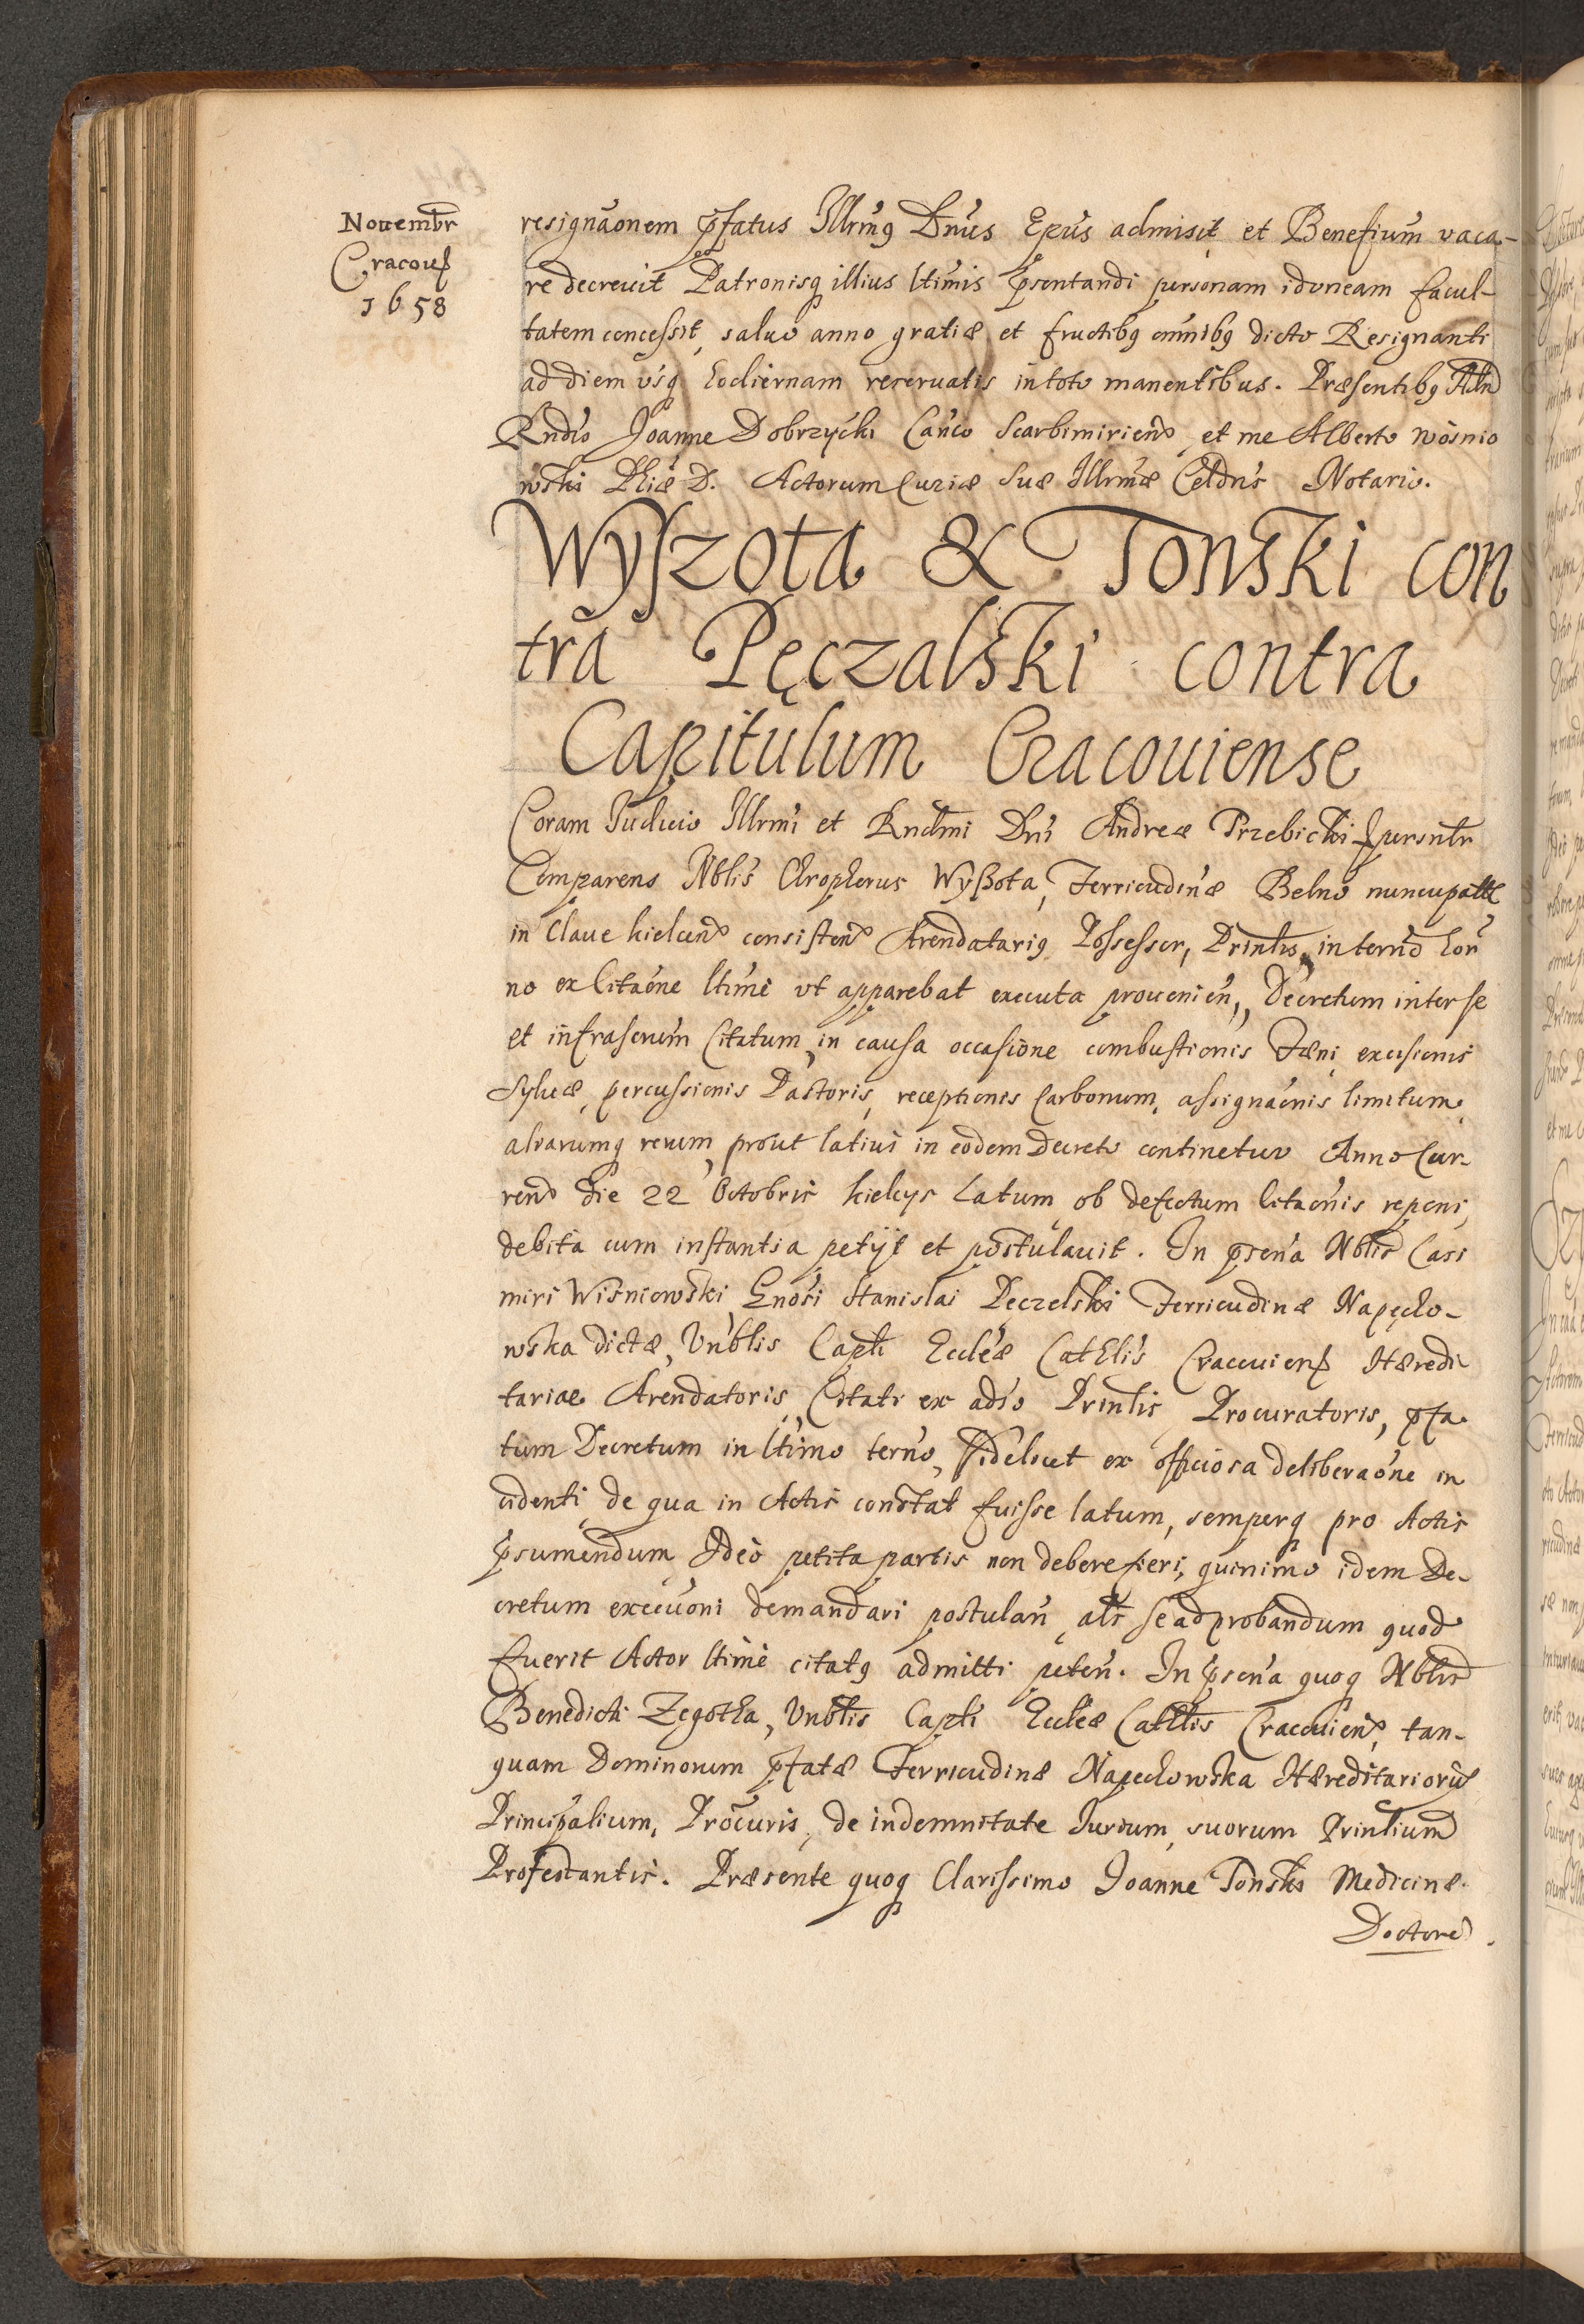 Nouembr
Cracouß
1658
resignãonem p̃fatus Illrmꝰ Dnus Epus admisit et Benefium vaca-
re decreuit Patronisq illius ltimis p̃sentandi personam idoneam facul-
tatem concessit, saluo anno gratiæ et fructibꝰ omnibꝰ dicto Resignanti
ad diem vsq hodiernam reseruatis in toto manentibus. Præsentibꝰ Adm
Rndo Joanne Dobrzycki Canco Scarbimirien et me Alberto wosnio
wski Phiæ D. Actorum Curiæ Suæ Illrmæ Celdnis Notario.
Wyszota & Tonski con
tra Pęczalski contra
Capitulum Cracouiense
Coram Judicio Illrmi et Rndmi Dni Andreæ Trzebicki personlr
Comparens Nblis Chrophorus Wyßota, Terricudinæ Belno nuncupatæ
in Claue kielcen consisten Arendatariꝰ Possessor, Prinlis, in termo hod
no ex Citaone ltime vt apparebat executa prouenien, Decretum inter se
et infrascrum Citatum, in causa occasione combustionis Fæni, excisionis
Syluæ, percussionis Pastoris, receptionis Carbonum, assignaonis limitum,
aliarumq rerum, prout latius in eodem Decreto continetur Anno Cur-
ren die 22 Octobris kielcys Latum, ob defectum Citaonis reponi,
debita cum instantia petijt et postulauit. In p̃sena Nblis Casi
miri Wisniowski, Gnosi Stanislai Pęczelski Terricudinæ Napęcho-
wska dictæ, Vnblis Capli Ecclæ Cathlis Cracouienß Hæredi
tariae Arendatoris, Citati ex adso Prinlis Procuratoris, p̃fa
tum Decretum in ltimo terno, Videlicet ex officiosa deliberaone in
cidenti, de qua in Actis constat fuisse latum, semperq pro Actis
p̃sumendum, Ideo petita partis non debere fieri, quinimo idem De-
cretum execuoni demandari postulan, als se ad probandum quod
fuerit Actor ltime citatꝰ admitti peten. In p̃sena quoq Nblis
Benedicti Zegotha, Vnblis Capli Ecclæ Cathlis Cracouien, tan-
quam Dominorum p̃fatæ Terricudinæ Napechowska Hæreditarioru
Principalium, Procuris, de indemnitate Jurium, suorum Prinlium
Protestantis. Præsente quoq Clarissimo Joanne Tonski Medicinæ
Doctore.